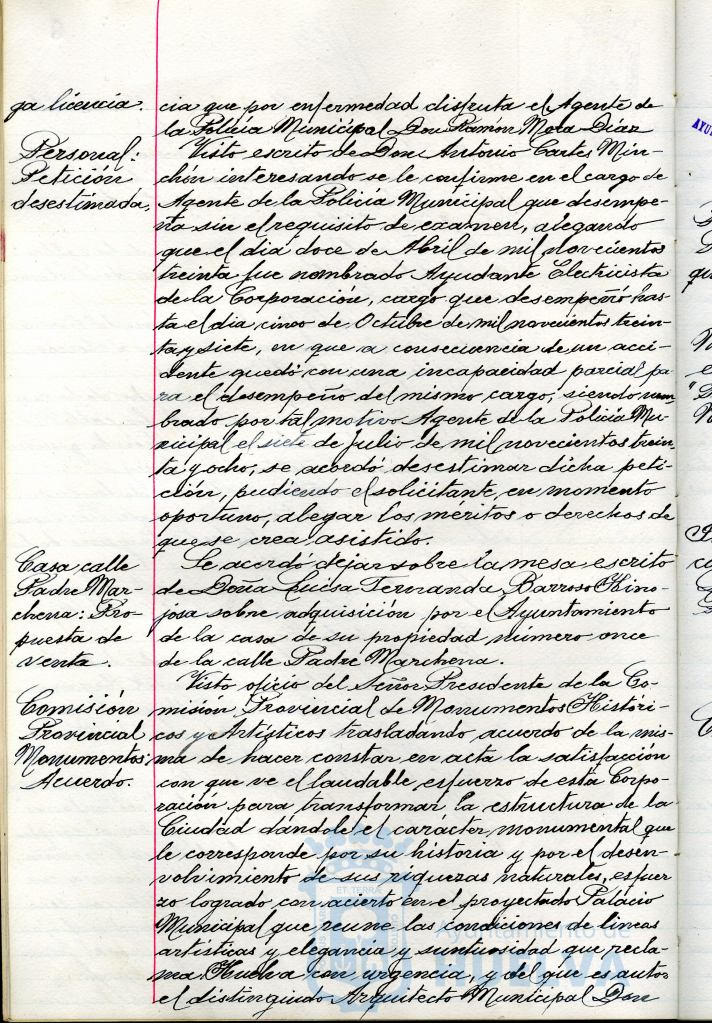 ga licencia.
cia que por enfermedad disfruta el Agente de
la Policía Municipal Don Ramón Mora Díaz
Personal:
Petición
desestimada,
Visto escrito de Don Antonio Cartes Min-
chón interesando se le confirme en el cargo de
Agente de la Policía Municipal que desempe-
ña sin el requisito de examen, alegando
que el dia doce de Abril de mil novecientos
treinta fue nombrado Ayudante Electricista
de la Corporación, cargo que desempeñó has-
ta el dia cinco de Octubre de mil novecientos trein-
ta y siete, en que a consecuencia de un acci-
dente quedó con una incapacidad parcial pa-
ra el desempeño del mismo cargo, siendo nom-
brado por tal motivo Agente de la Policía Mu-
nicipal el siete de Julio de mil novecientos trein-
ta y ocho, se acordó desestimar dicha peti-
ción, pudiendo el solicitante, en momento
oportuno, alegar los méritos o derechos de
que se crea asistido.
Casa calle
Padre Mar-
chena: Pro-
puesta de
venta.
Se acordó dejar sobre la mesa escrito
de Doña Luisa Fernanda Barroso Hino-
josa sobre adquisición por el Ayuntamiento
de la casa de su propiedad número once
de la calle Padre Marchena.
Comisión
Provincial
Monumentos:
Acuerdo.
Visto oficio del Señor Presidente de la Co-
misión Provincial de Monumentos Históri-
cos y Artísticos trasladando acuerdo de la mis-
ma de hacer constar en acta la satisfacción
con que ve el laudable esfuerzo de esta Corpo-
ración para transformar la estructura de la
Ciudad dándole el carácter monumental que
le corresponde por su historia y por el desen-
volvimiento de sus riquezas naturales, esfuer-
zo logrado con acierto en el proyectado Palacio
Municipal que reune las condiciones de lineas
artísticas y elegancia y suntuosidad que recla-
ma Huelva con urgencia, y del que es autor
el distinguido Arquitecto Municipal Don
Ayuntamiento de
HUELVA